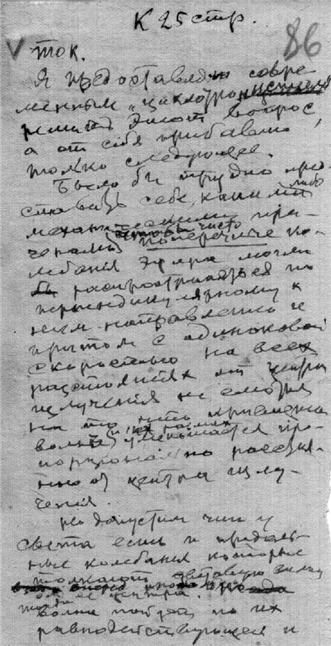 К 25 стр.
86
V ток.
Я предоставляю совре-
менным "циклотронщикам"
решить этот вопрос,
а от себя прибавлю
только следующее.
Было бы трудно пред-
ставить себе, какими либо
механическими при-
чинами поперечные ко-
лебания эфира могли
распространяться по
перпендикулярному к
ним направлению и
притом с одинаковой
скоростью на всех
расстояниях от центра
излучения не смотря
на то что кривизна
волны уменьшается про-
порционально расстоя-
нию от центра излу-
чения
Но допустим что у
света есть и продоль-
ные колебания которые
толкают световую волну
от ее центра.
тогда
волна пойдет по их
равнодействующей и